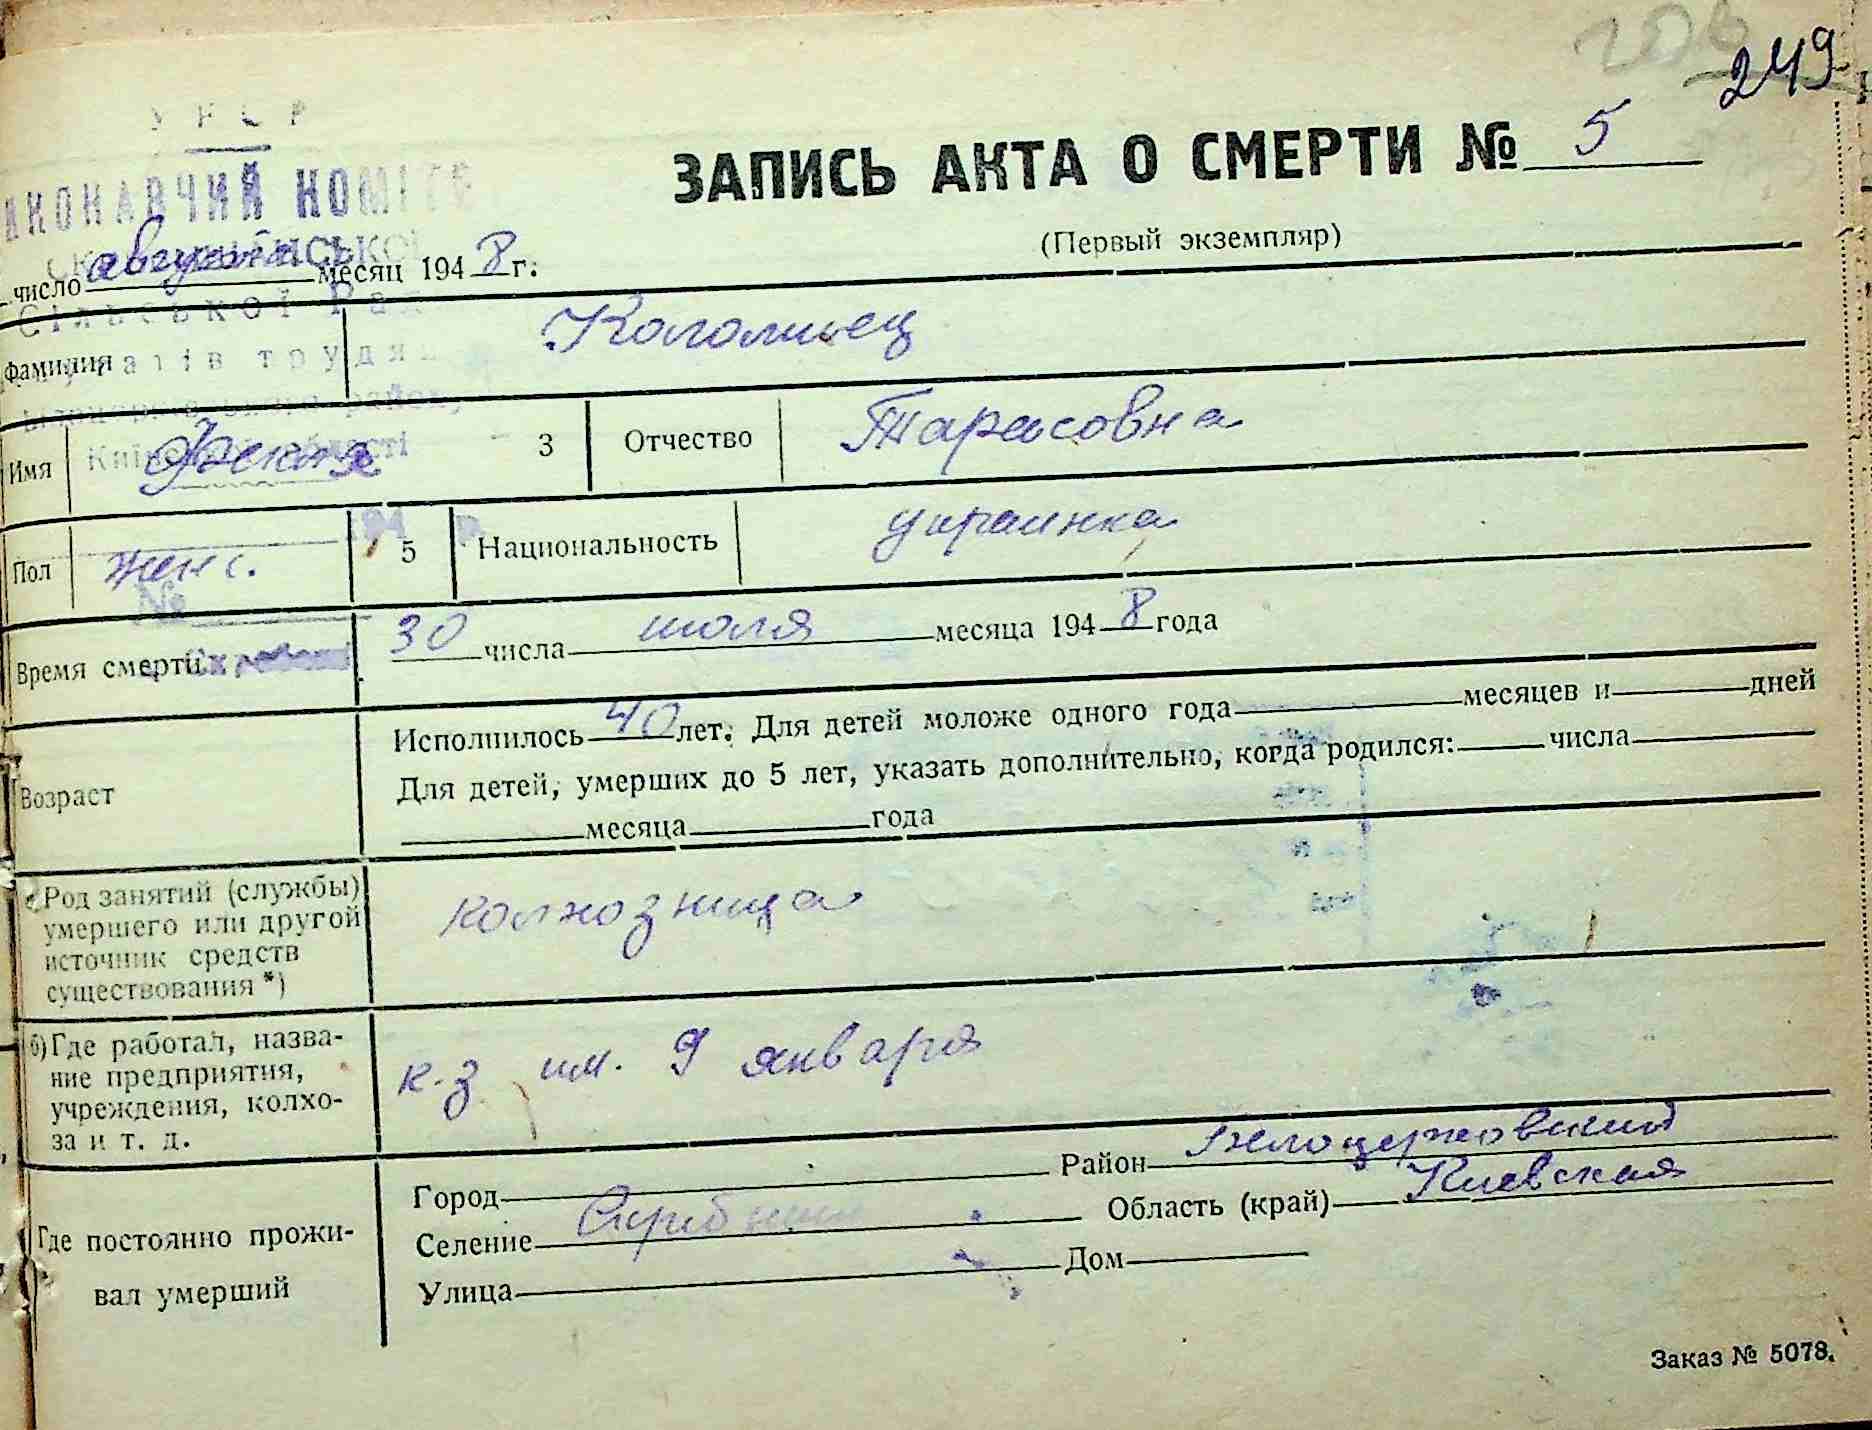 249
УРСР
ВИКОНАВЧИЙ КОМІТЕТ
Сільської Ради
депутатів трудящих
Київської області
ЗАПИСЬ АКТА О СМЕРТИ № 5
(Первый экземпляр)
число августа месяц 1948 г.
фамилия Коломиец
Имя Фекла 3 Отчество Тарасовна
Пол женс. 5 Национальность украинка
Время смерти 30 числа июля месяца 1948 года
Возраст
Исполнилось 40 лет. Для детей моложе одного года месяцев и дней
Для детей, умерших до 5 лет, указать дополнительно, когда родился: числа
месяца года
Род занятий (службы)
умершего или другой
источник средств
существования *)
колхозница
б) Где работал, назва-
ние предприятия,
учреждения, колхо-
за и т. д.
к-з им. 9 января
Где постоянно прожи-
вал умерший
Город Район Белоцерковский
Селение Область (край) Киевская
Улица Дом
Заказ № 5078.